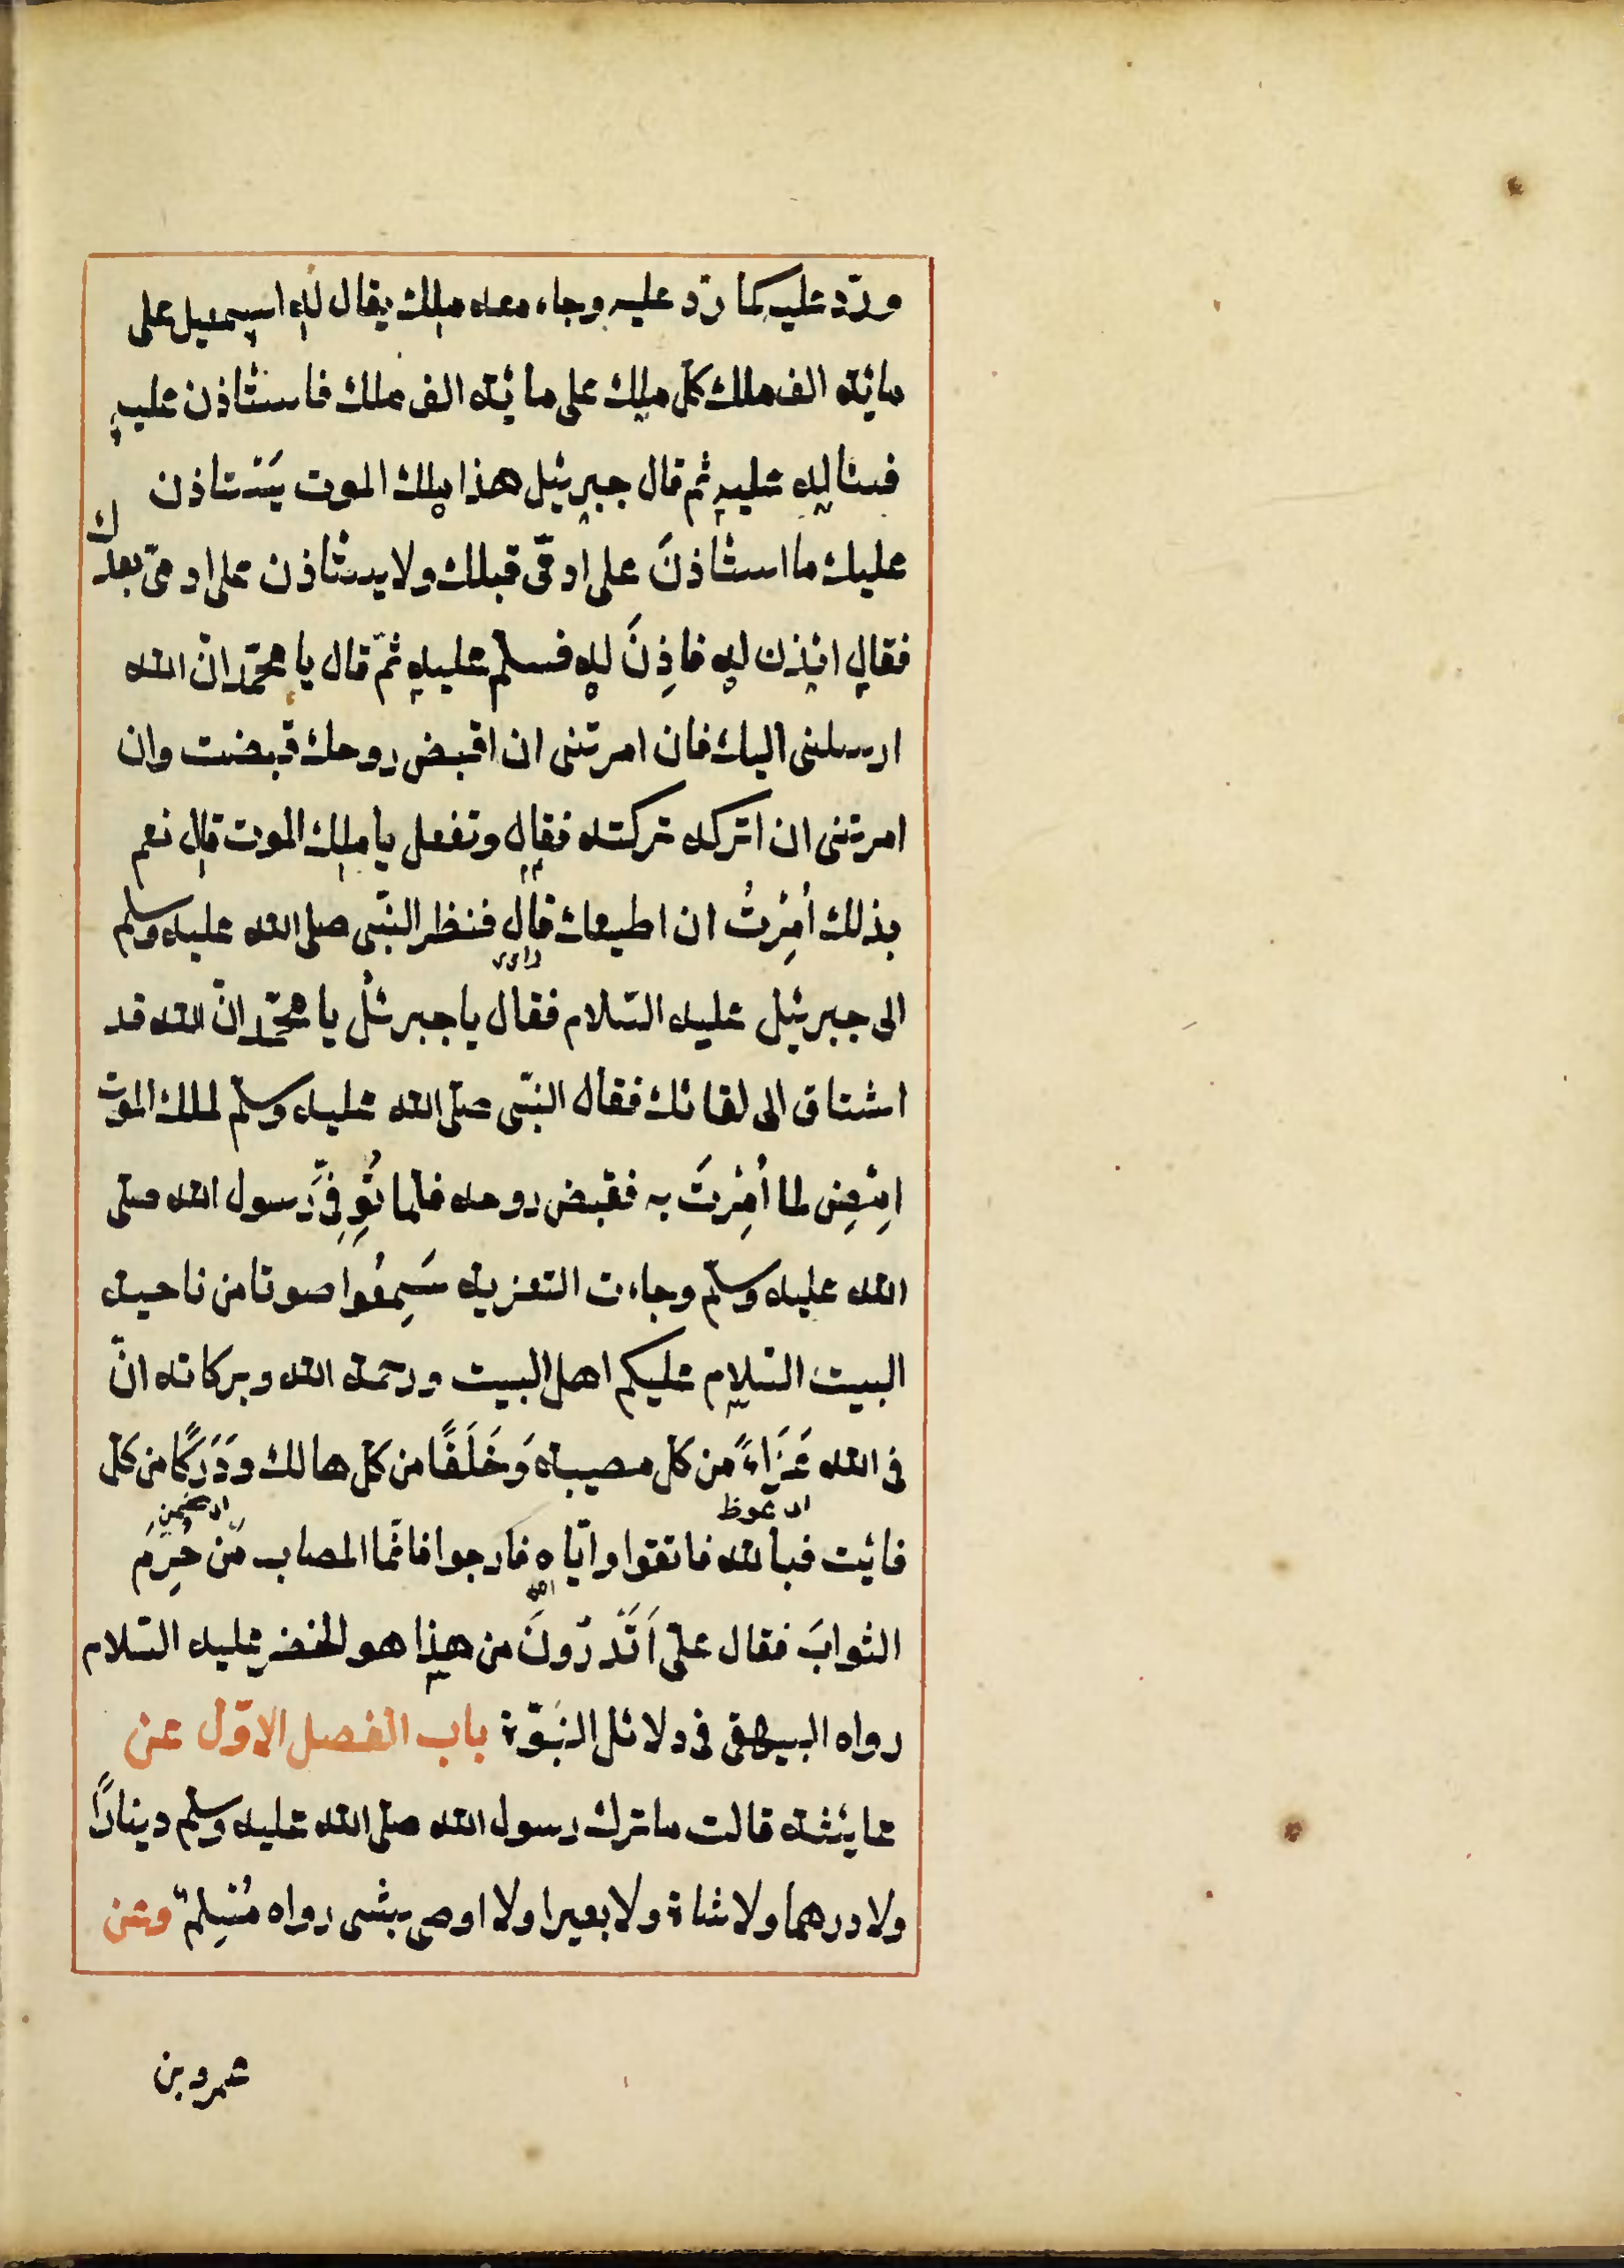 وردّ عليه كما ردّ عليه وجاء معه ملك يقال له اسمعيل على
مائة الف ملك كلّ ملك على مائة الف ملك فاستاذن عليه
فساله عليه ثم قال جبرئيل هذا ملك الموت يَسْتاذن
عليك ما استاذنَ على ادمىّ قبلك ولا يستاذن على ادمىّ بعدك
فقال ائذن له فاَذِنَ له فسلم عليه ثمّ قال يا محمّد انّ الله
ارسلنى اليك فان امرتنى ان اقبض روحك قبضت وان
امرتنى ان اتركه تركته فقال وتفعل يا ملك الموت قال نعم
بذلك اُمِرْتُ ان اطيعك قال فنظر النبّى صلى الله عليه وسلم
راوى
الى جبرئيل عليه السّلام فقال يا جبرئلُ يا محمّد انّ الله قد
اشتاق الى لقائك فقال النبّى صلّى الله عليه وسلّم لملك الموت
اِمْضِ لما اُمِرْتَ به فقبض روحه فلما تُوِفِّىَ رسول الله صلى
الله عليه وسلّم وجاءت التعزية سَمِعُوا صوتا من ناحية
البيت السّلام عليكم اهل البيت ورحمة الله وبركاته انّ
فى الله عَزَاءً من كل مصيبة وَخَلَفًا من كل هالك ودَرَكًا من كل
فائت فبالله فاتقوا وايّاه فارجوا فانّما المصاب مَنْ حُرِمَ
الثوابَ فقال علىّ اَتَدْرُونَ من هذا هو الخضر عليه السّلام
رواه البيهقى فى دلائل النبّوة باب الفصل الاوّل عن
عايشة قالت ما ترك رسول الله صلى الله عليه وسلم دينارًا
ولا درهما ولا شاة ولا بعيرا ولا اوصى بشى رواه مُسْلِم وعن
عمرو بن